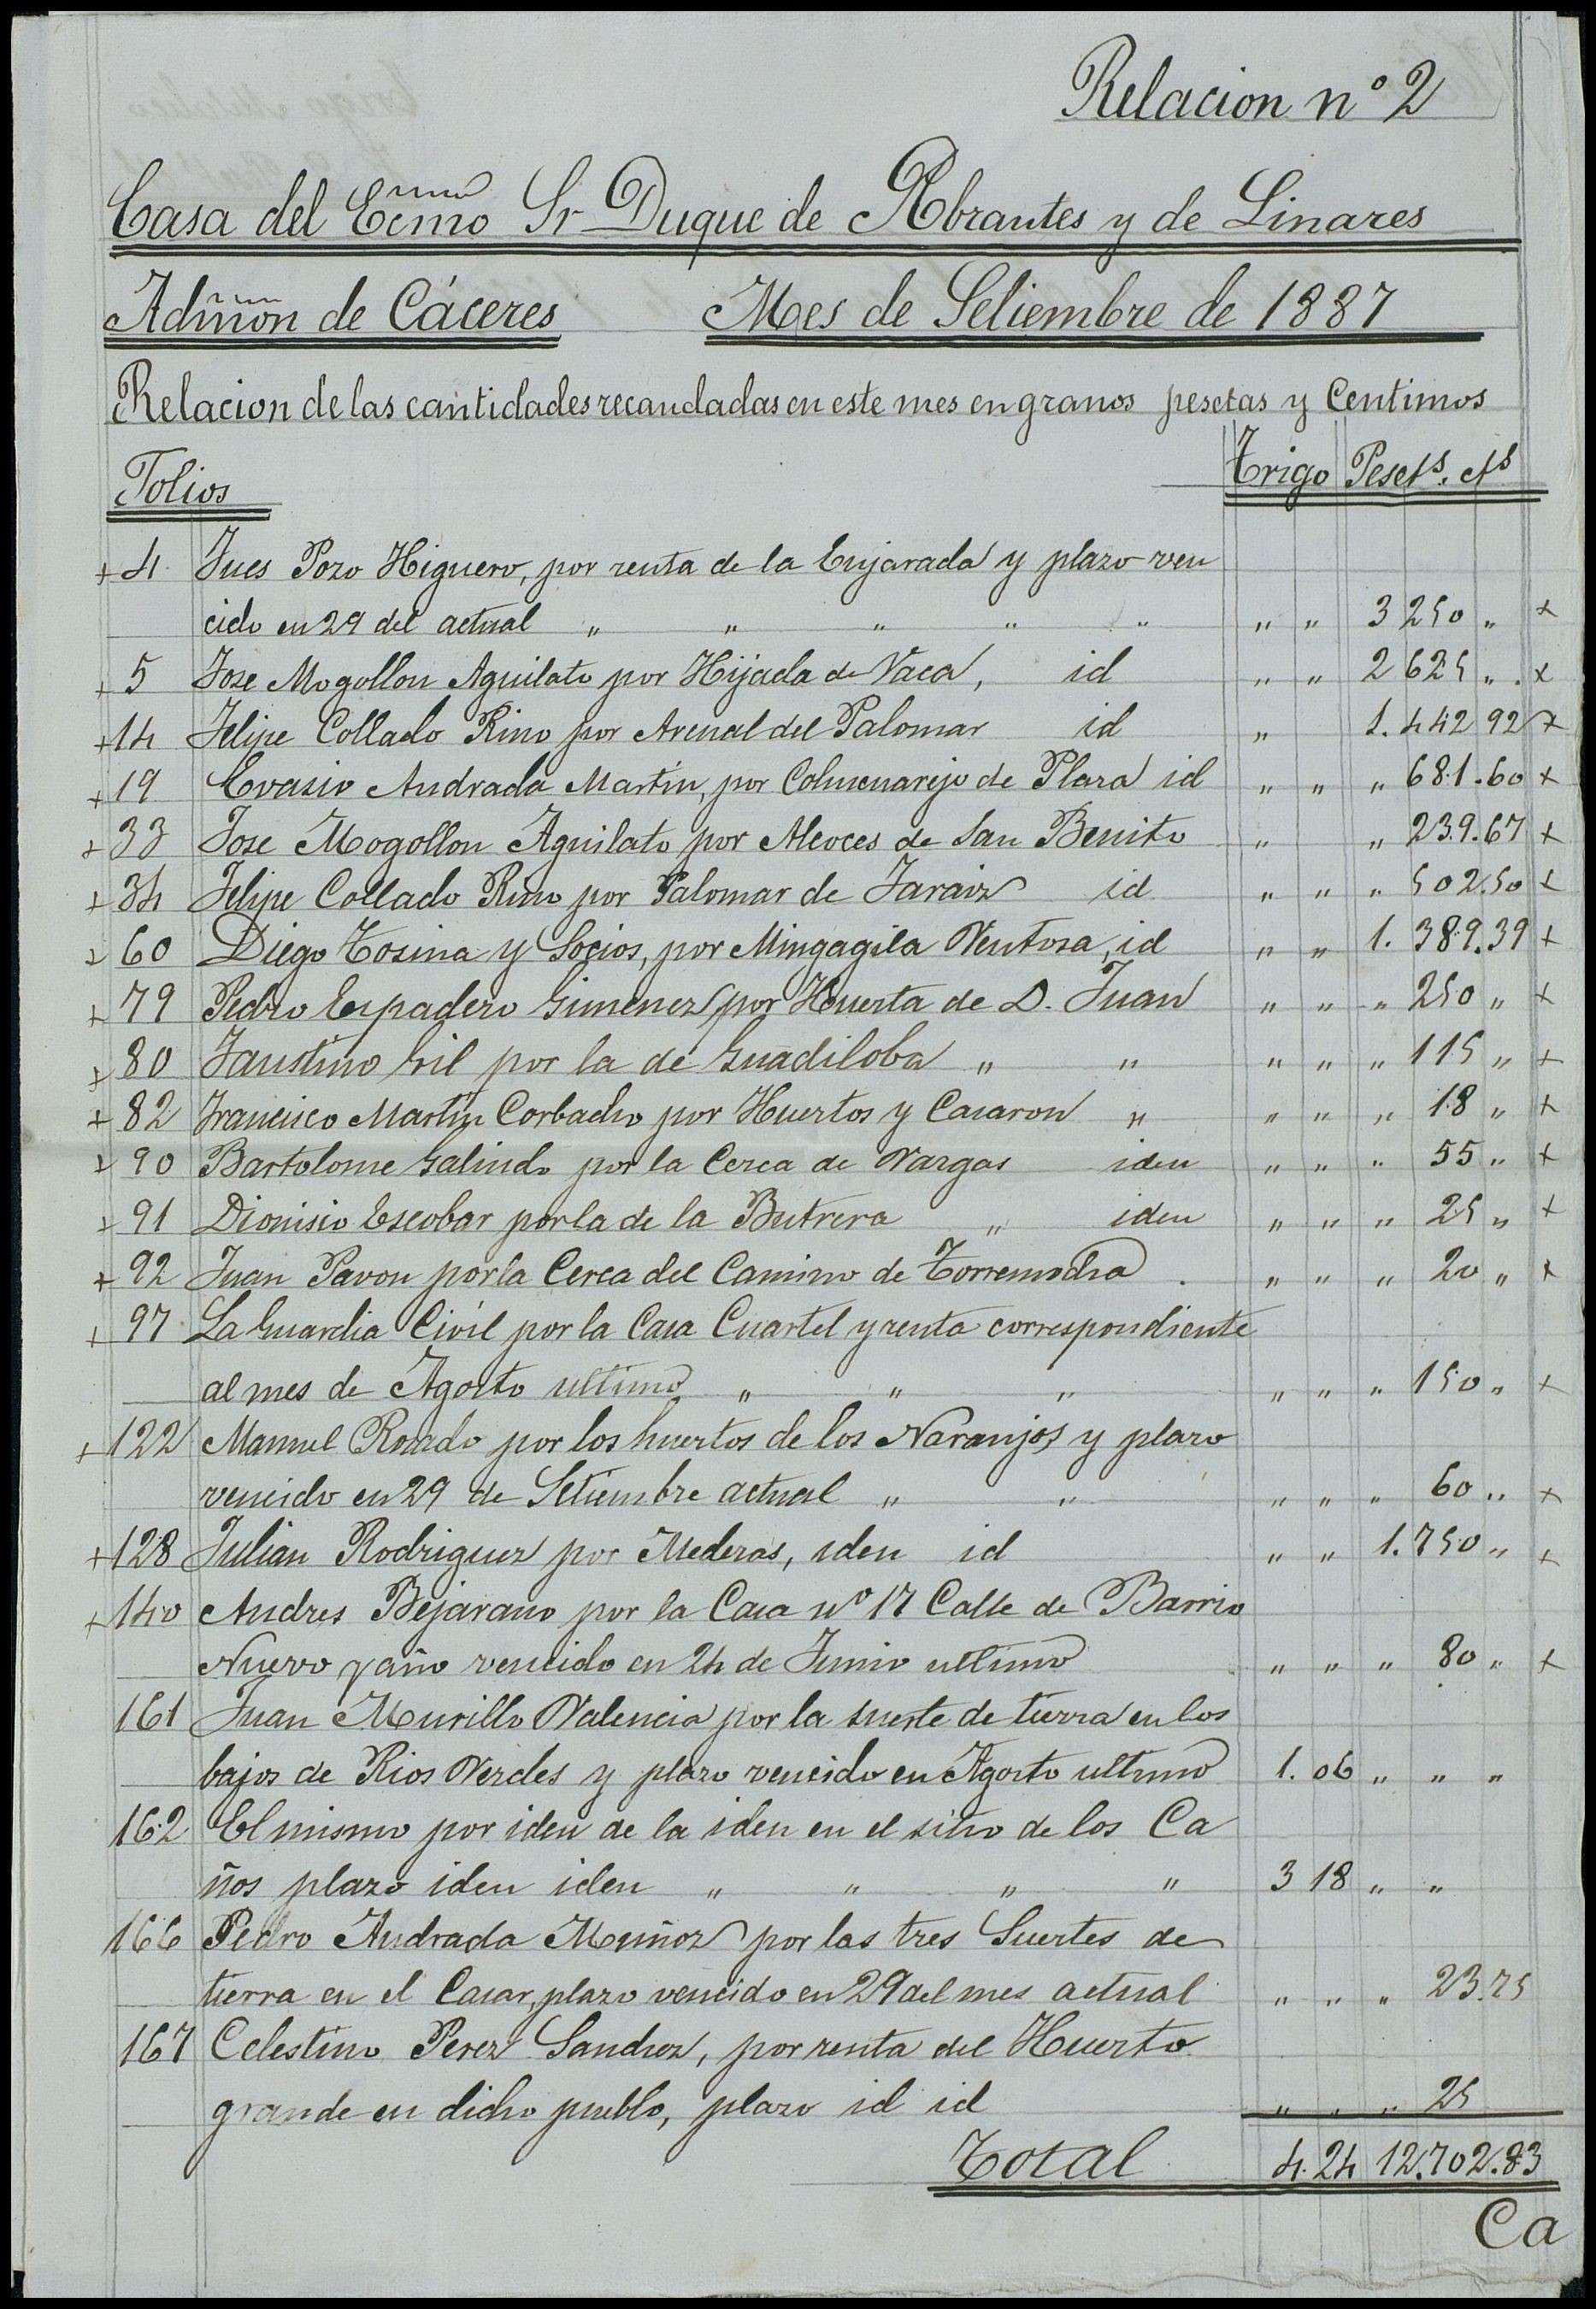 Relacion nº 2
Casa del Ecmo Sr Duque de Abrantes y de Linares
Admon de Cáceres Mes de Setiembre de 1887
Relacion de las cantidades recaudadas en este mes en granos pesetas y Centimos
Folios Trigo Peset.s cts
+ 4 Ines Pozo Higuero, por renta de la Enjarada y plazo ven
cido en 29 del actual " " " " " " " 3 250 " x
+ 5 Jose Mogollon Aguilato por Hijada de Vaca, id " " 2 625 " . x
+ 14 Felipe Collado Rino por Arenal del Palomar id " 1. 442 92 x
+ 19 Evasio Andrada Martin, por Colmenarejo de Plaza id " " " 681.60 x
+ 33 Jose Mogollon Aguilato por Alcoces de San Benito " " 239.67 x
+ 34 Felipe Collado Rino por Palomar de Jaraiz id " " " 502.50 x
+ 60 Diego Tosina y Socios, por Mingagila Ventosa, id " " 1. 389.39 x
+ 79 Pedro Espadero Gimenez por Huerta de D. Juan " " " 250 " x
+ 80 Faustino Gil por la de Guadiloba " " " " " 115 " x
+ 82 Francisco Martin Corbacho por Huertos y Casaron " " " " 18 " x
+ 90 Bartolome Galindo por la Cerca de Vargas iden " " " 55 " x
+ 91 Dionisio Escobar por la de la Butrera " iden " " " 25 " x
+ 92 Juan Pavon por la Cerca del Camino de Torremocha . " " " 20 " x
+ 97 La Guardia Civil por la Casa Cuartel y renta correspondiente
al mes de Agosto ultimo " " " " " " 150 " x
+ 122 Manuel Rosado por los huertos de los Naranjos y plazo
vencido en 29 de Setiembre actual " " " " " 60 " x
+ 128 Julian Rodriguez por Mederas, iden id " " 1.750 " x
+ 140 Andres Bejarano por la Casa nº 17 Calle de Barrio
Nuevo y año vencido en 24 de Junio ultimo " " " 80 " x
161 Juan Murillo Valencia por la suerte de tierra en los
bajos de Rios Verdes y plazo vencido en Agosto ultimo 1. 06 " " "
162 El mismo por iden de la iden en el sitio de los Ca
ños plazo iden iden " " " " 3 18 " "
166 Pedro Andrada Muñoz por las tres Suertes de
tierra en el Casar, plazo vencido en 29 del mes actual " " " 23.75
167 Celestino Perez Sanchez, por renta del Huerto
grande en dicho pueblo, plazo id id " " " 25
Total 4.24 12.702.83
Ca